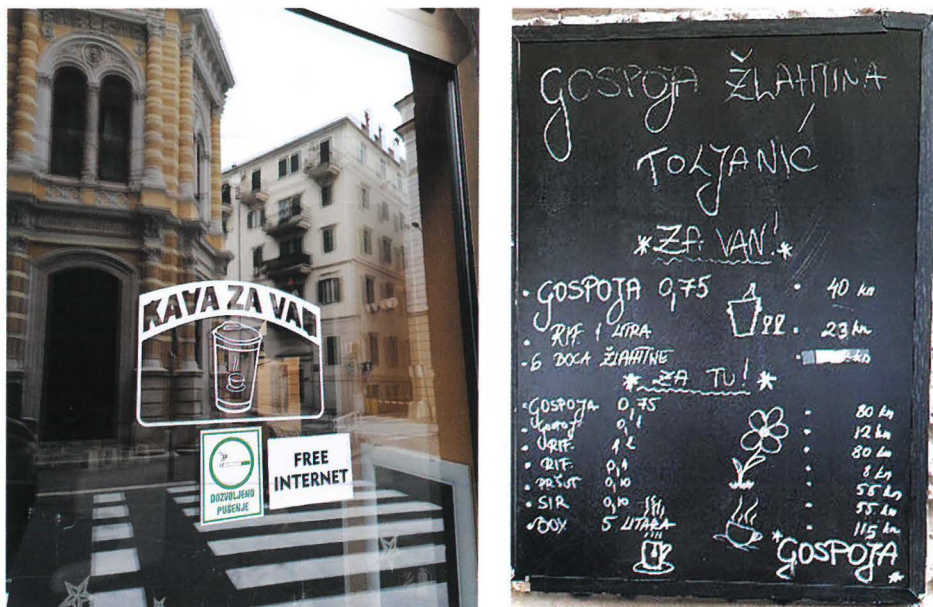 KAVA ZA VAN
DOZVOLJENO
PUŠENJE
FREE
INTERNET
GOSPOJA ŽLAHTINA
TOLJANIĆ
*ZA VAN!*
• GOSPOJA 0,75 • 40 kn
• RIF. 1 LITRA • 23 kn
• 6 BOCA ŽLAHTINE • kn
* ZA TU! *
• GOSPOJA 0,75 • 80 kn
• GOSPOJ. 0,1 • 12 kn
• RIF. 1 l • 80 kn
• RIF. 0,1 • 8 kn
• PRŠUT 0,10 • 55 kn
• SIR 0,10 • 55 kn
• BOX 5 LITARA • 115 kn
*GOSPOJA*